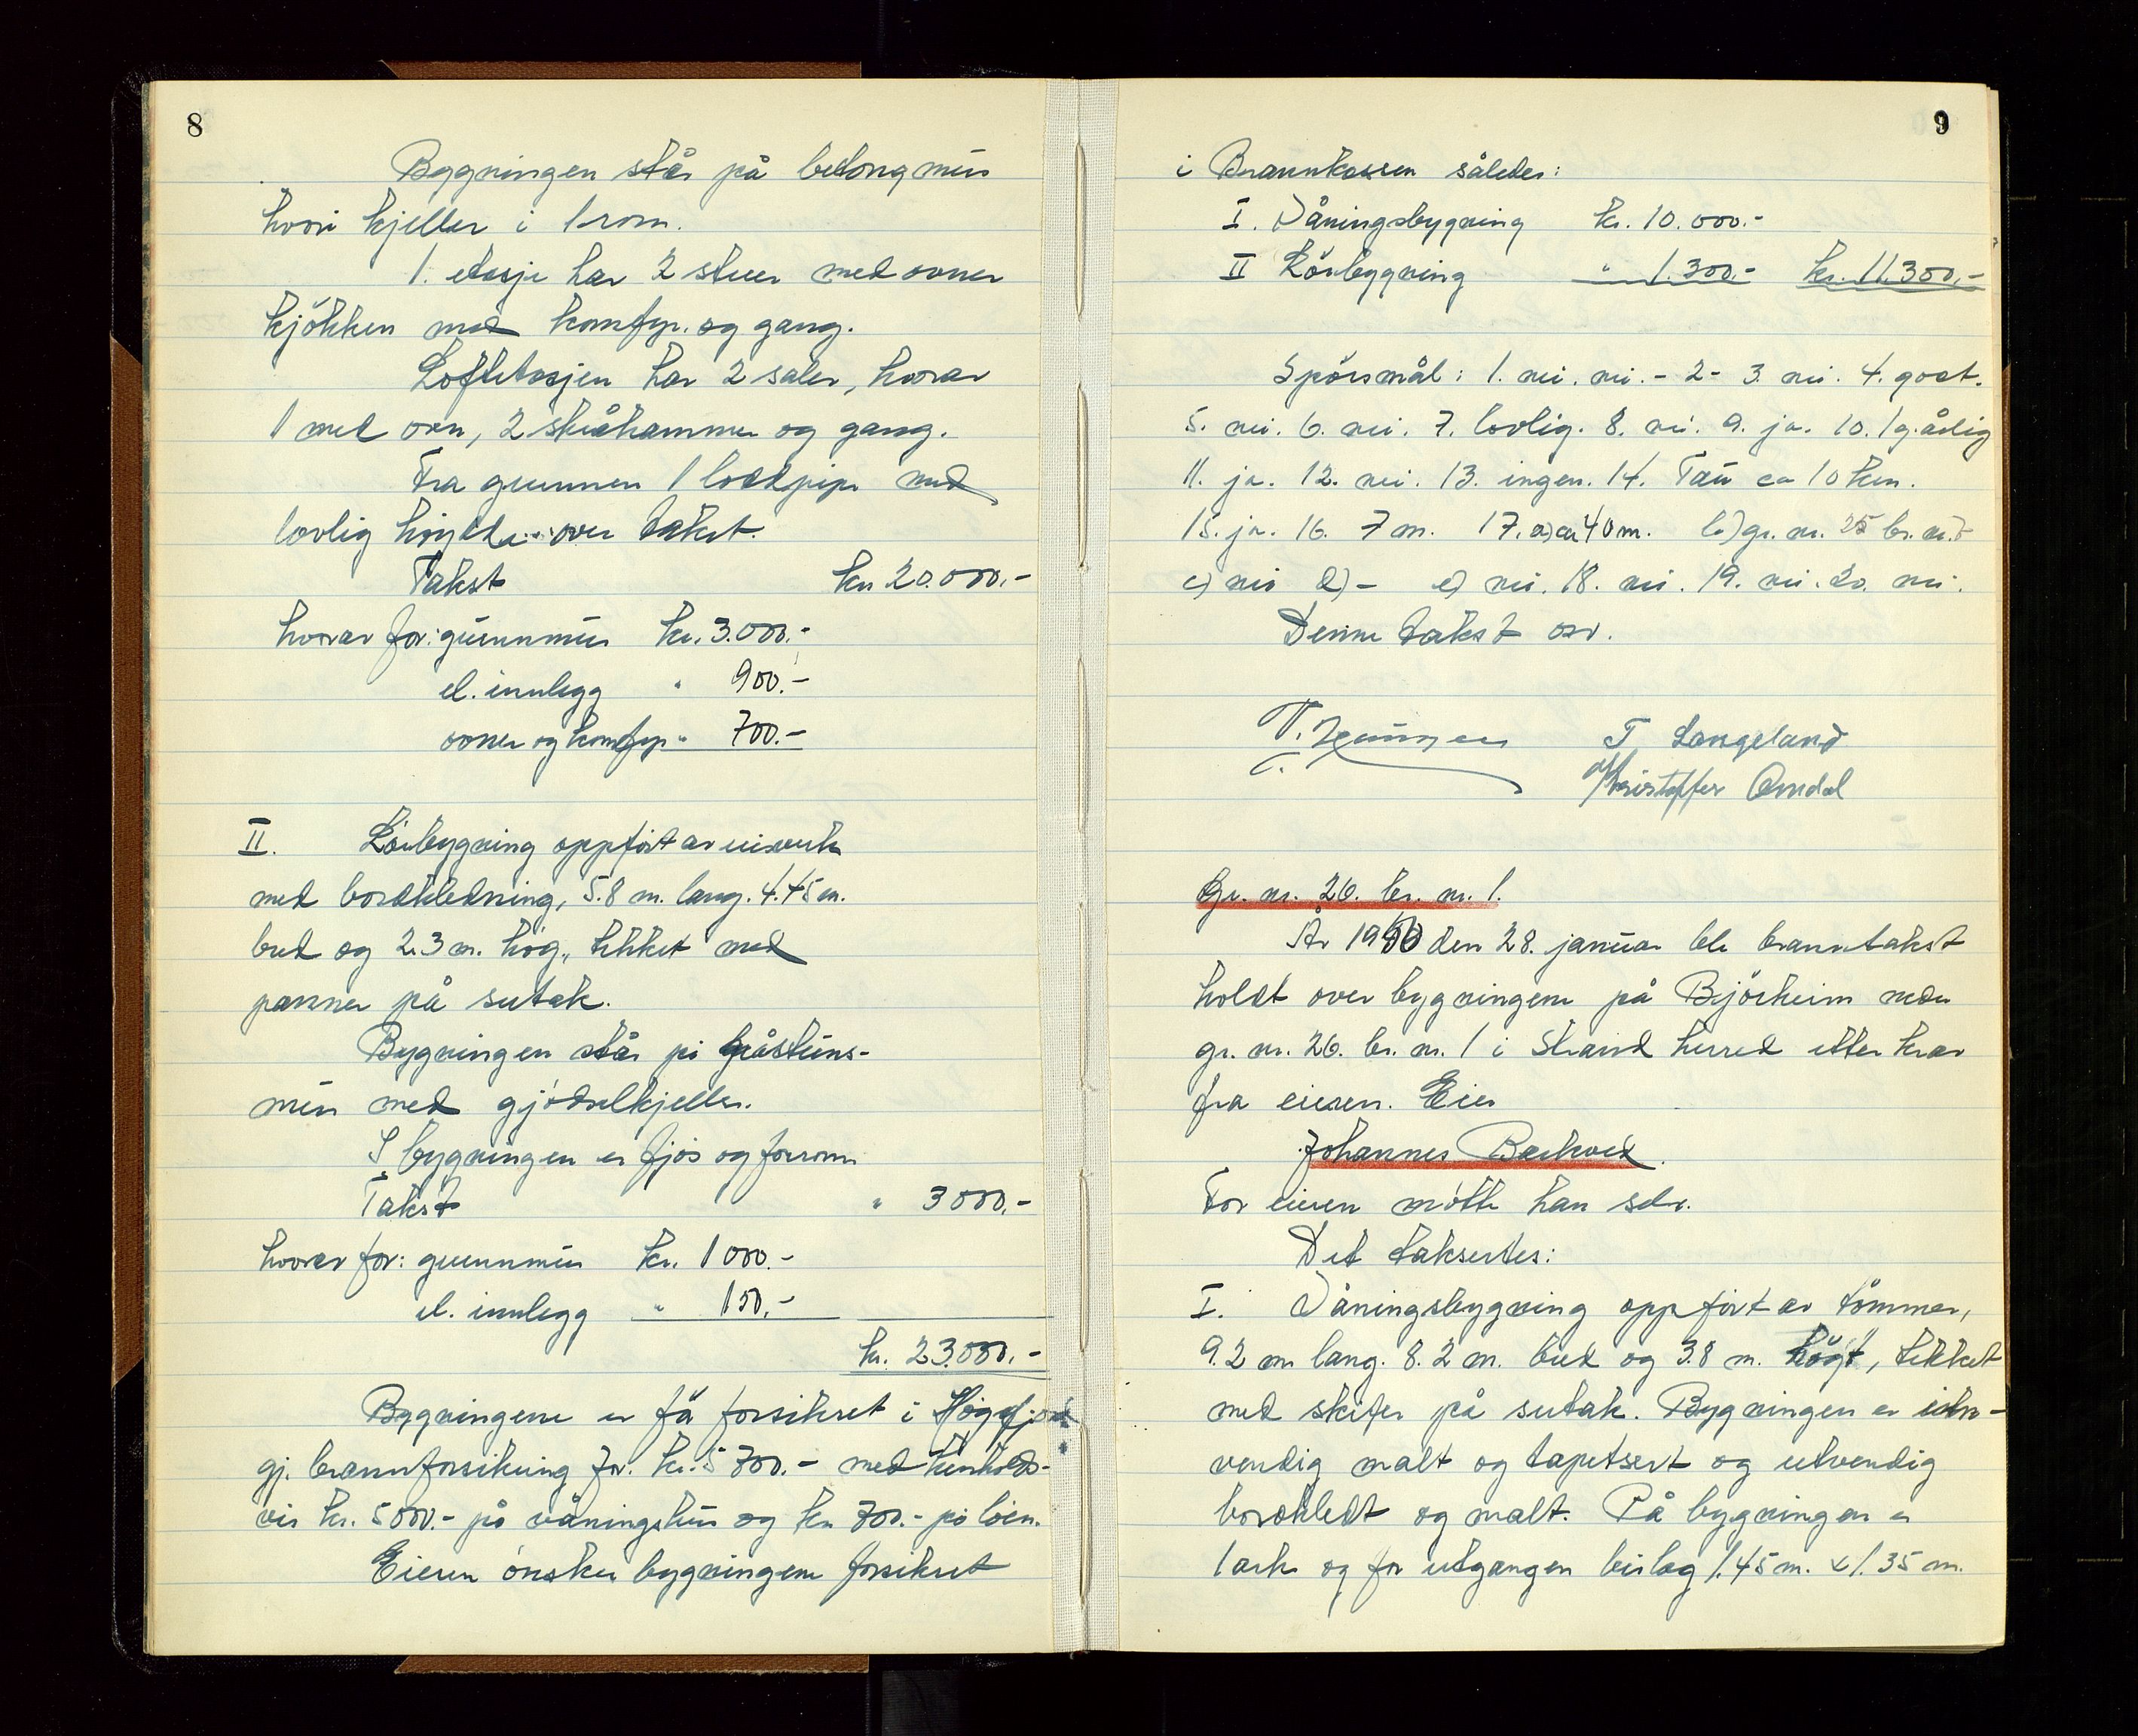 8
Bygningen står på betongmur
hvori kjeller i 1 rom.
1. etasje har 2 stuer med ovner
kjökken med komfyr. og gang.
Loftetasjen har 2 saler, hvorav
1 med ovn, 2 skråkammer og gang.
Fra grunnen 1 loddpipe med
lovlig høyde over taket.
Takst kr. 20.000.-
hvorav for: grunnmur kr. 3.000.-
el. innlegg " 900.-
ovner og komfyr " 700.-
II. Löebygning oppført av reisverk
med bordkledning, 5.8 m. lang. 4.45 m.
bred og 2.3 m. høg., tekket med
panner på sutak.
Bygningen står på gråsteins-
mur med gjødselkjeller.
I bygningen er fjös og forrom
Takst " 3000.-
hvorav for: grunnmur kr. 1000.-
el. innlegg " 150.-
kr. 23.000.-
Bygningene er för forsikret i Høgsfjord
gj. brannforsikring for. kr. 5700.- med henholds-
vis kr. 5000.- på våningshus og kr. 700.- på löen.
Eieren ønsker bygningene forsikret
9
i Brannkassen således:
I. Våningsbygning kr. 10.000.-
II Löebygning " 1.300.- kr. 11.300.-
Spörsmål: 1. nei. nei. - 2 - 3. nei. 4. godt.
5. nei. 6. nei. 7. lovlig. 8. nei. 9. ja. 10. 1 g. årlig
11. ja. 12. nei. 13. ingen. 14. Tau ca 10 km.
15. ja. 16. 7 m. 17. a) ca 40 m. b) gr. nr. 25 br. nr.
c) nei d) - e) nei. 18. nei. 19. nei. 20. nei.
Denne takst osv.
T Langeland
Kristoffer Omdal
Gr. nr. 26. br. nr. 1.
År 1950 den 28. januar ble branntakst
holdt over bygningene på Björheim nedre
gr. nr. 26. br. nr. 1 i Strand herred etter krav
fra eieren. Eier
Johannes Barkved.
For eieren møtte han selv.
Det taksertes:
I. Våningsbygning oppført av tömmer,
9.2 m lang. 8.2 m. bred og 3.8 m. högt, tekket
med skifer på sutak. Bygningen er inn-
vendig malt og tapetsert og utvendig
bordkledt og malt. På bygningen er
1 ark og for utgangen bislag 1.45 m. x 1.35 m.